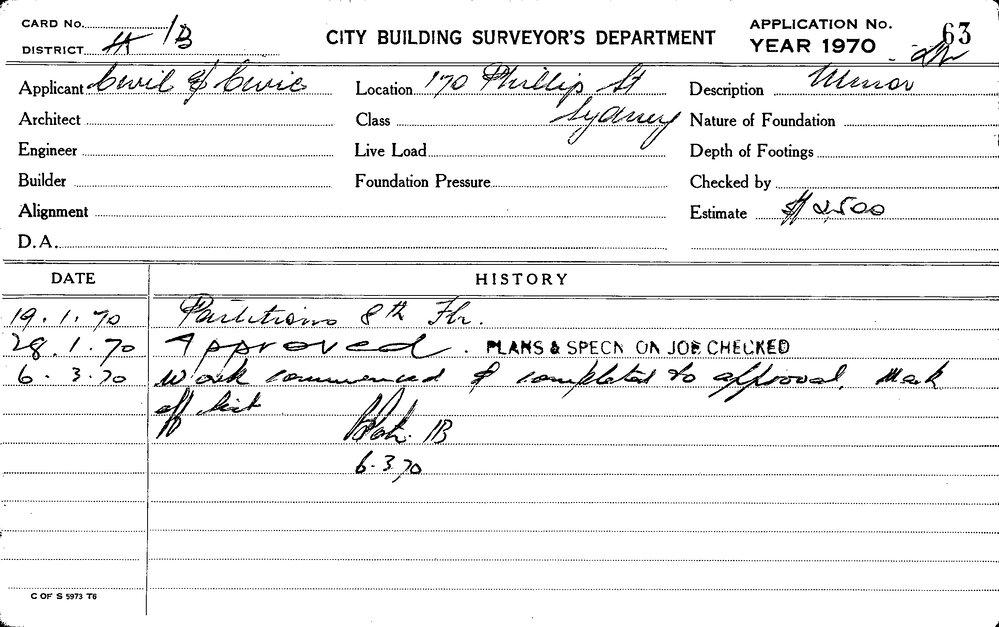 CARD No.
DISTRICT 1A 1B
CITY BUILDING SURVEYOR'S DEPARTMENT
APPLICATION No. 63
YEAR 1970
Applicant Civil & Civic
Location 170 Phillip St
Sydney
Description Minor
Architect
Class
Nature of Foundation
Engineer
Live Load
Depth of Footings
Builder
Foundation Pressure
Checked by
Alignment
Estimate $2,500
D.A.
DATE
HISTORY
19.1.70 Partitions 8th Flr.
28.1.70 Approved. PLANS & SPECN ON JOB CHECKED
6.3.70 Work commenced & completed to approval. Mark
off list
1B
6.3.70
C OF S 5973 T6